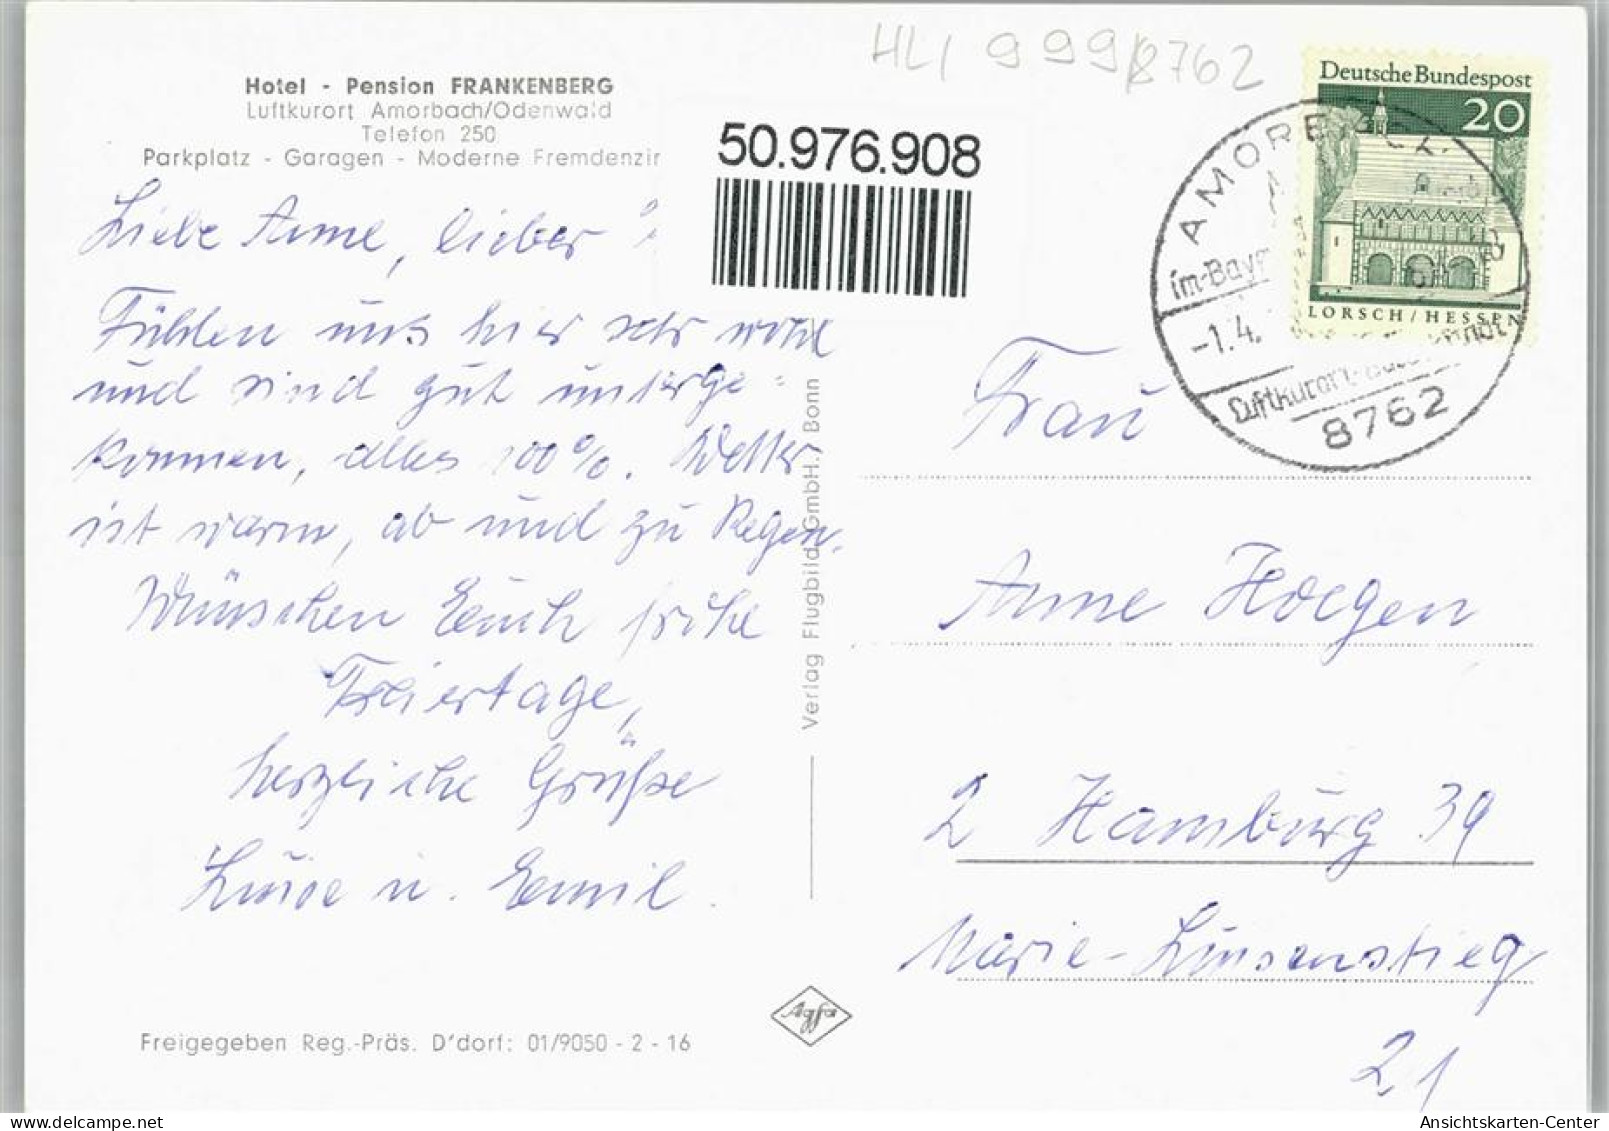 HLI 999 8762
Hotel - Pension FRANKENBERG
Luftkurort Amorbach/Odenwald
Telefon 250
Parkplatz - Garagen - Moderne Fremdenzir
50.976.908
Deutsche Bundespost
20
LORSCH / HESSEN
im Bay
-1.4.
Luftkurort
8762
Liebe Anne, lieber
Fühlen uns hier sehr wohl
und sind gut unterge-
kommen, alles 100%. Wetter
ist warm, ab und zu Regen.
Wünschen Euch frohe
Feiertage,
herzliche Grüße
Luise u. Emil.
Verlag Flugbild GmbH., Bonn
Frau
Anne Hoegen
2 Hamburg 39
Marie-Luisenstieg
21
Agfa
Freigegeben Reg.-Präs. D'dorf: 01/9050 - 2 - 16
Ansichtskarten-Center